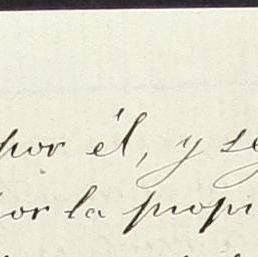 por él, y se
por la propi